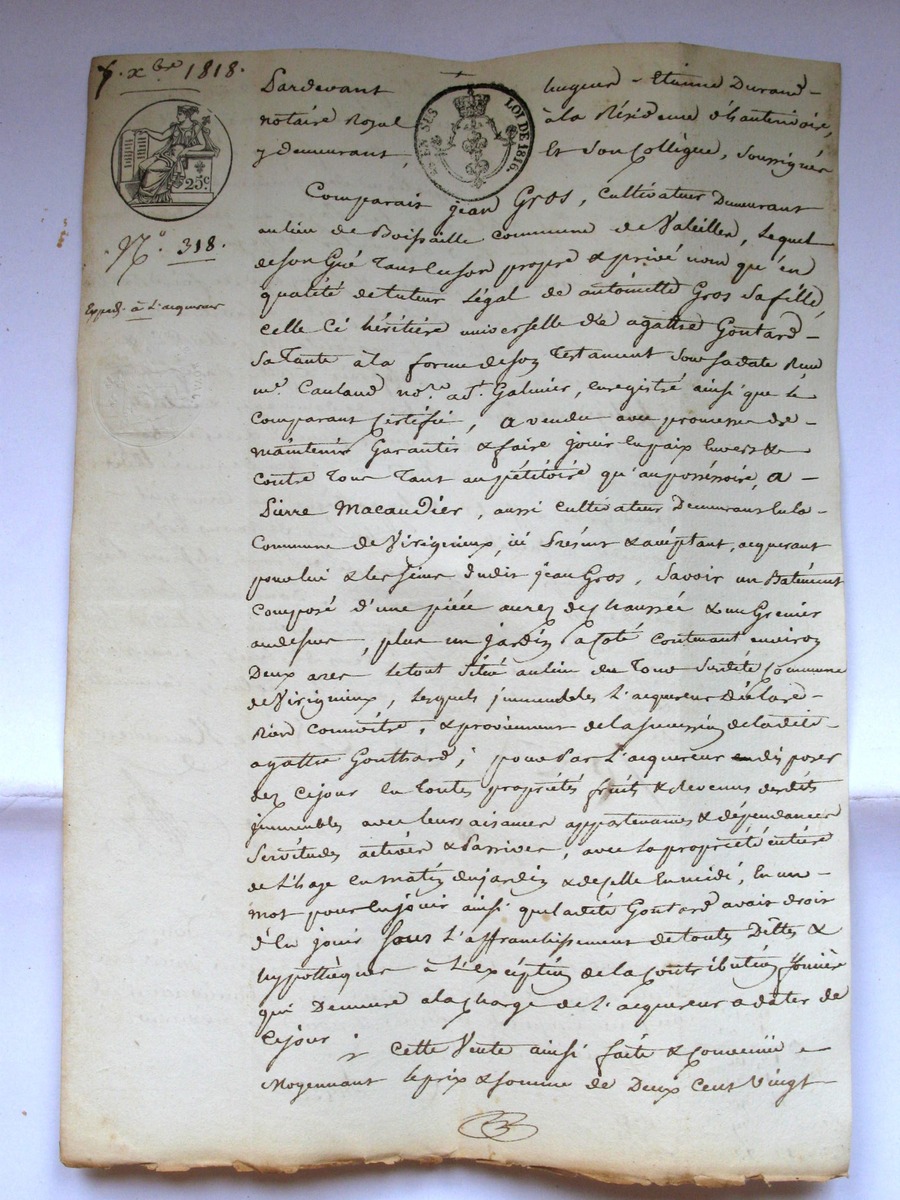 7. xbre 1818.
25c
LOI DE 1816.
No. 318.
Exped. à L'acquereur
Pardevant hugues - Etienne Durand -
notaire Royal à la Résidence de Chantenoise,
y demeurant, Et son Collègue, soussignés
Comparait jean Gros, Cultivateur Demeurant
au lieu de Boissaille commune de Valeille, Lequel
de son Gré tant en son propre & privé nom qu'en
qualité de tuteur Légal de antoinette Gros Sa fille,
celle Ci héritière universelle de agathe Goutard -
Sa tante à la forme de son testament sous sa date Reçu
me. Cauland nore. a St. Galmier, enregistré ainsi que le
Comparant Certifie, a vendu avec promesse de -
maintenir Garantir & faire jouir en paix Envers &
Contre tous tant au pétitoire qu'au possessoire, a -
Pierre Macaudier, aussi Cultivateur Demeurant en la -
Commune de Virigneux, ici Présent & acceptant, acquerant
pour lui & les siens dudit jean Gros, Savoir un Batiment
Composé d'une pièce au rez de chaussée & un Grenier
au dessus, plus un jardin a Coté Contenant environ
Deux ares le tout situé au lieu du susdite Commune
de Virigneux, Lesquels immeubles L'acquereur Déclare -
bien Connoitre, & proviennent de la succession de la dite -
agathe Gouttard; pour Par L'acquereur en disposer
dez ce jour En toutes propriétés fruits & revenus desdits
immeubles avec leurs aisances appartenances & dépendances
Servitudes actives & Passives, avec la propriété entière
de L'haye en matin du jardin & de celle En midi, En un -
mot pour en jouir ainsi que ladite Goutard avait droit
d'En jouir sous L'affranchissement de toutes Dettes &
hypothèques à L'exception de la Contribution foncière
qui Demeure a la Charge de L'acquereur a dater de
Ce jour
Cette Vente ainsi faite & Convenue
Moyennant le prix & somme de Deux Cent Vingt